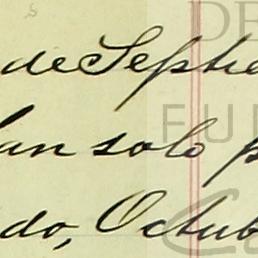 de Septie
an solo p
do, Octub